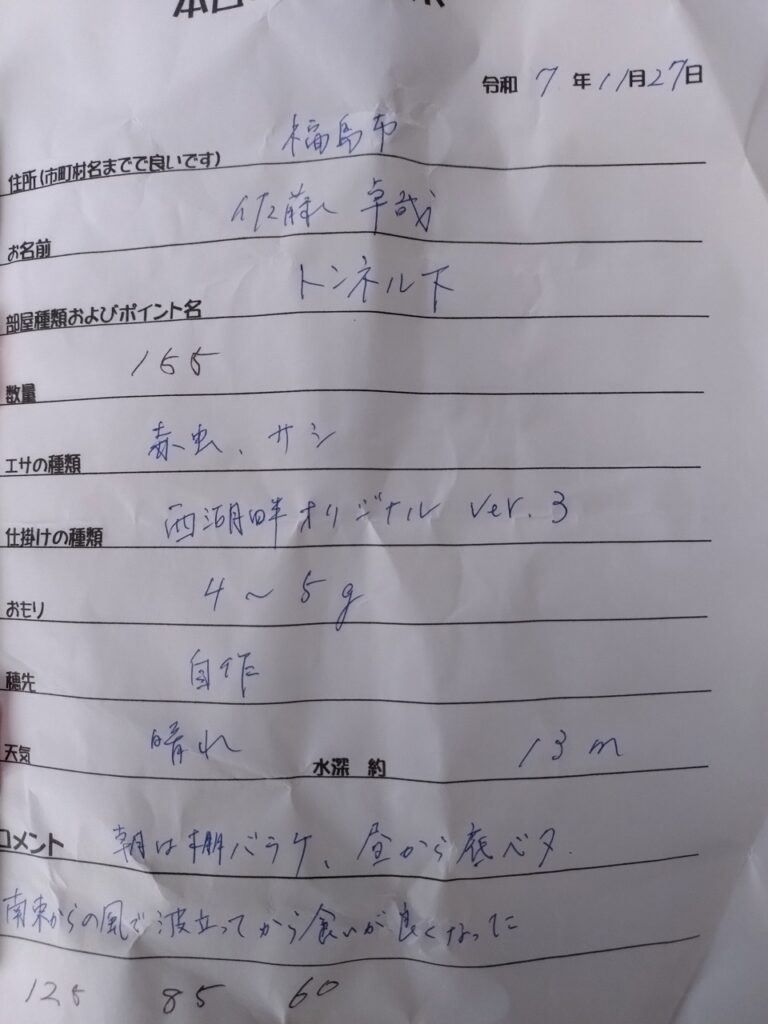 令和 7 年 11月27日
住所(市町村名までで良いです) 福島市
お名前 佐藤 卓哉
部屋種類およびポイント名 トンネル下
数量 165
エサの種類 赤虫、サシ
仕掛けの種類 西湖畔オリジナル ver.3
おもり 4～5g
穂先 自作
天気 晴れ 水深 約 13m
コメント 朝は棚バラケ、昼から底ベタ.
南東からの風で波立ってから食いが良くなった
125 85 60